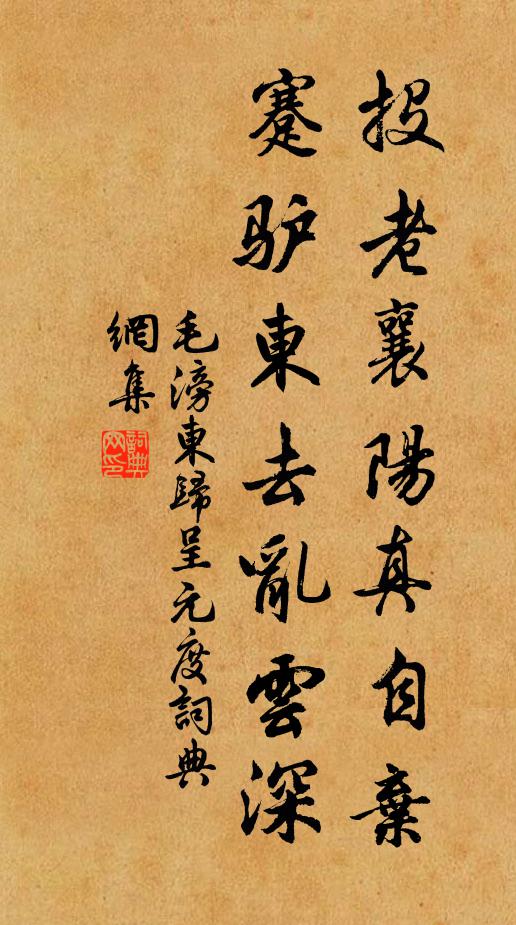 投老襄陽真自棄
蹇驴東去亂雲深
毛滂東歸呈元度詞典
網集
詞典
网印